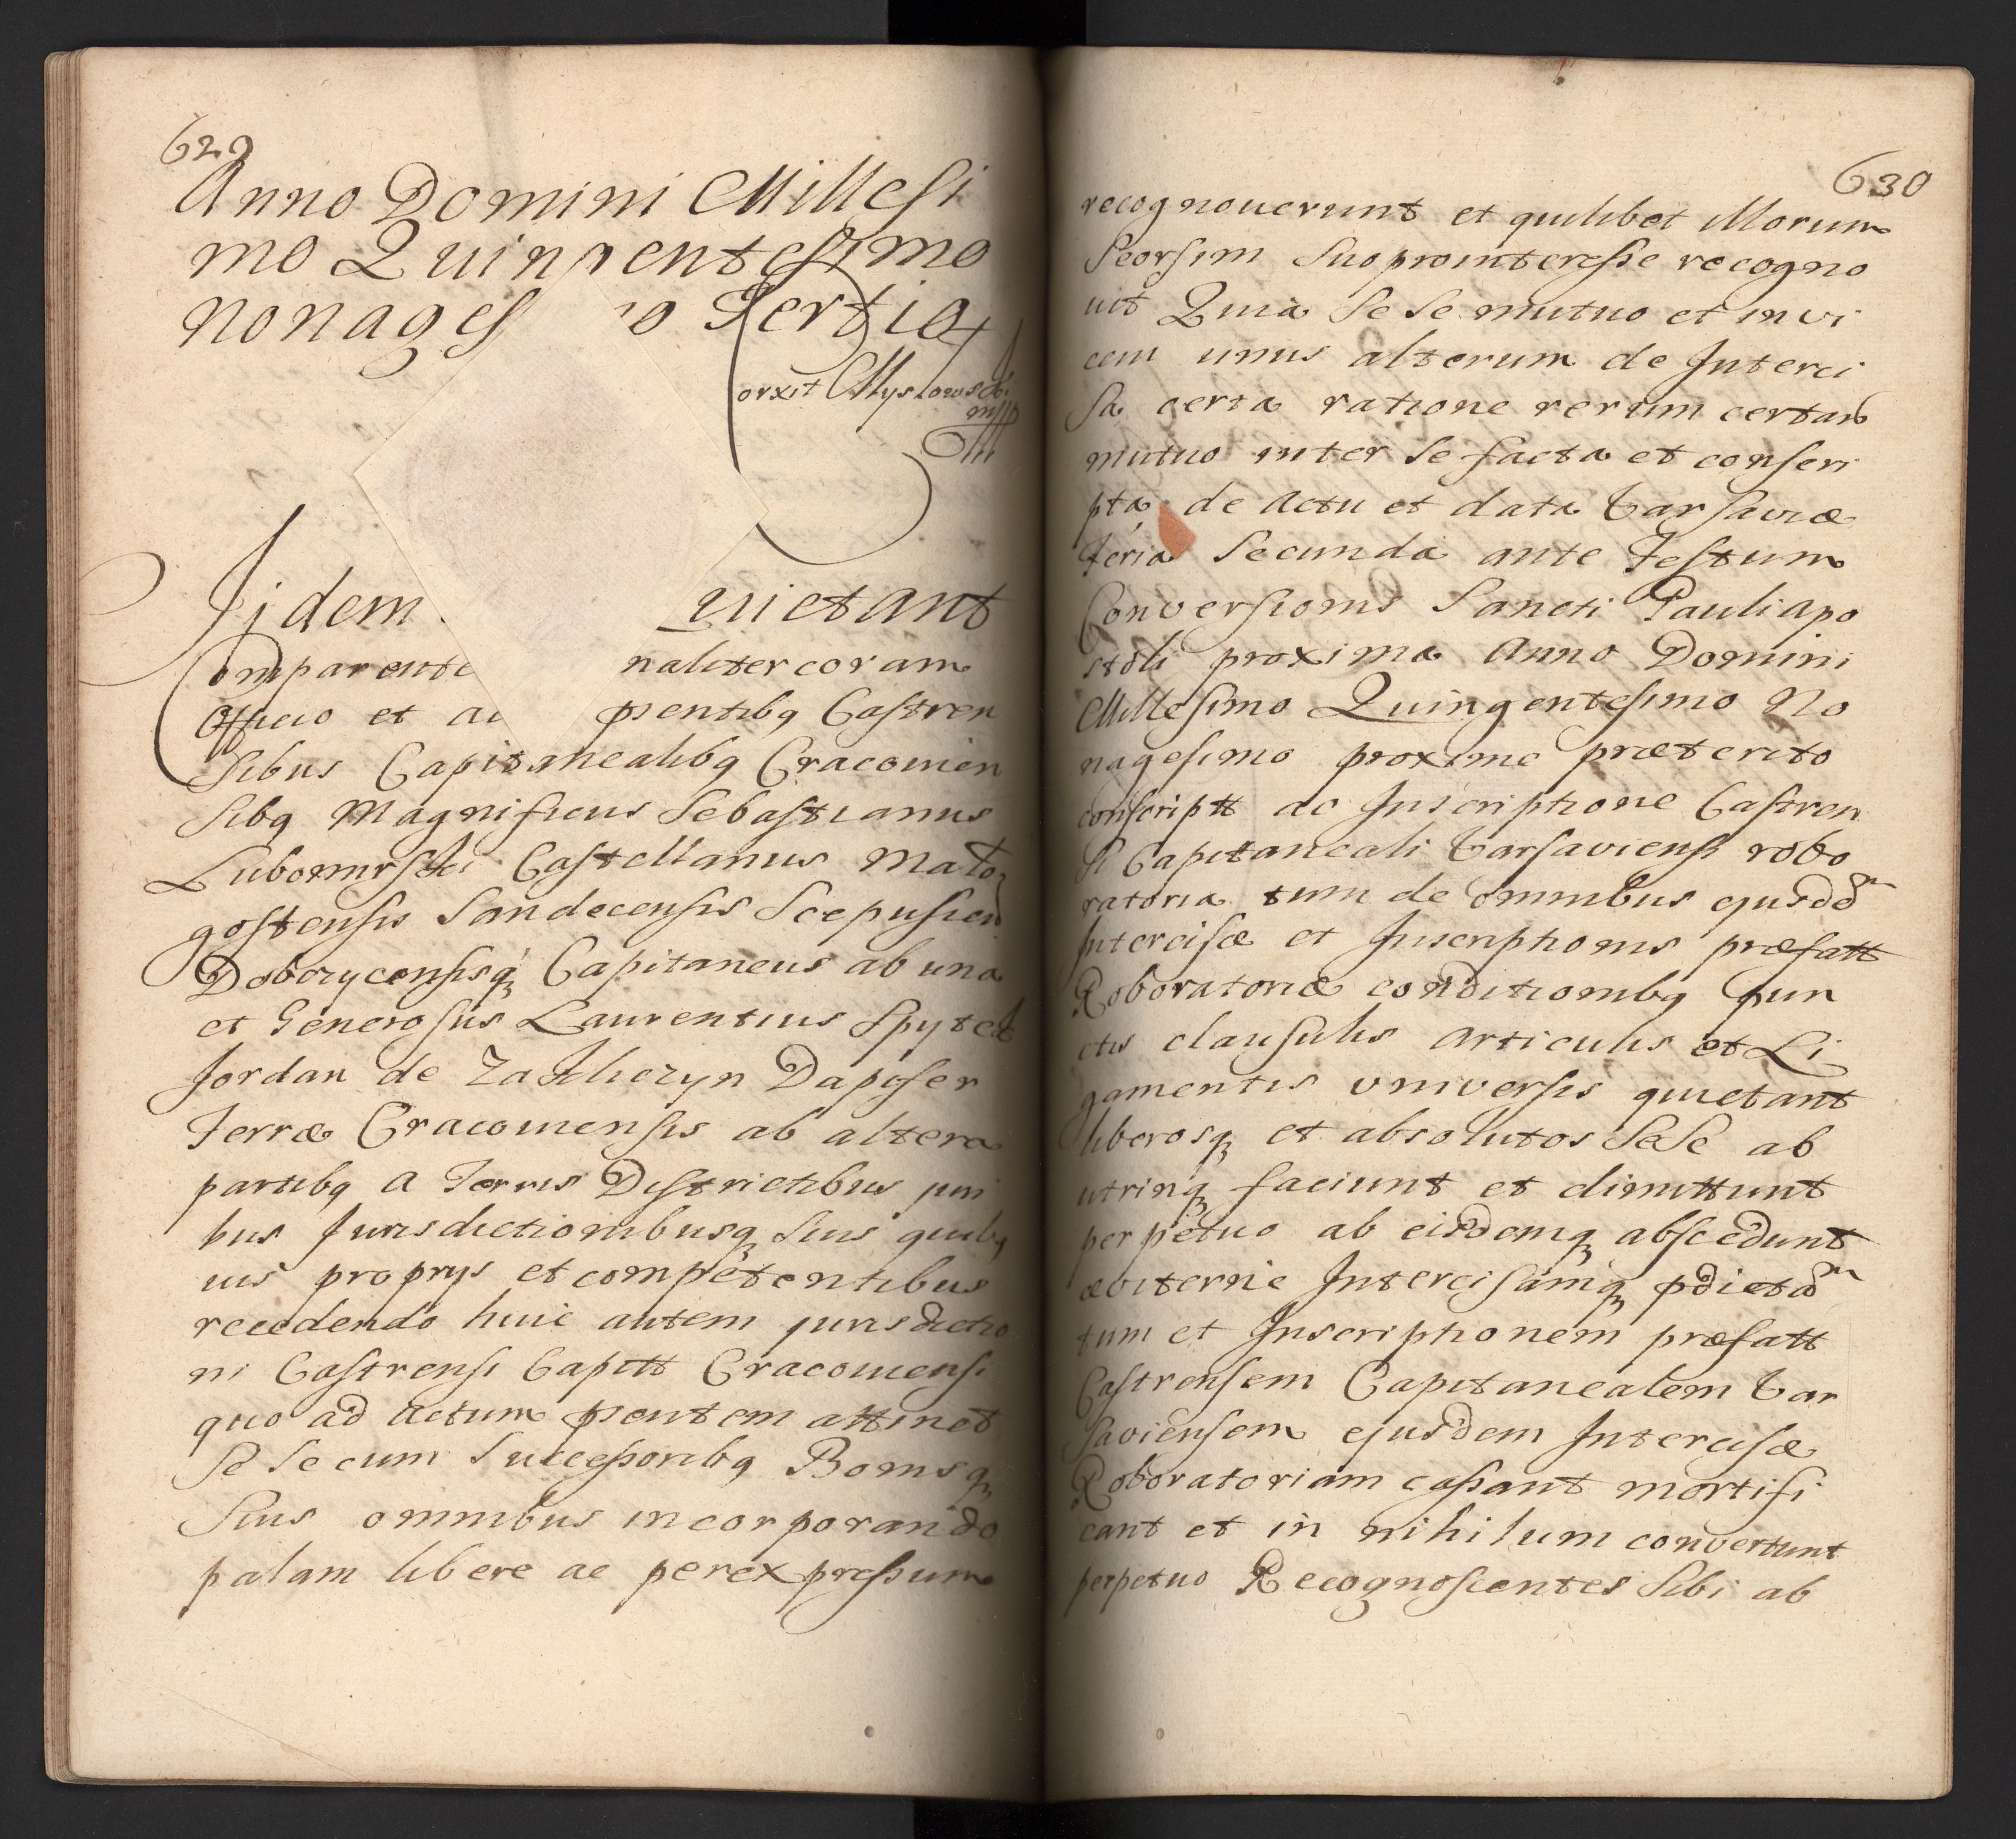 629
Anno Domini Millesi
mo Quingentesimo
nonages mo Tertio
orxit Myslowski
mpp
Jidem Quietant
Comparente naliter coram
Officio et ac pñentibq Castren
sibus Capitanealibq Cracovien
sibq Magnificus Sebastianus
Lubomirski Castellanus Malo
gostensis Sandecensis Scepusien
Dobczycensisq Capitaneus ab una
et Generosus Laurentius Spytek
Jordan de Zakliczyn Dapifer
Terræ Cracoviensis ab altera
partibq a Terris Districtibus pri
bus Jurisdictionibusq suis quibq
vis proprys et competentibus
recedendo huic autem jurisdictio
ni Castrensi Capitt Cracoviensi
quo ad actum pñentem attinet
se se cum successoribq Bonisq
suis omnibus incorporando
palam libere ac per expressum
630
recognoverunt et quilibet illorum
seorsim suo pro interesse recogno
vit Quia se se mutuo et invi
cem unus alterum de Interci
sa certa ratione rerum certar
mutuo inter se facta et conscri
pta de actu et data Varsaviæ
Feria Secunda ante Festum
Conversionis Sancti Pauli apo
stoli proxima Anno Domini
Millesimo Quingentesimo No
nagesimo proxime præterito
conscriptt ac Inscriptione Castren
si Capitaneali Varsaviensi robo
ratoria tum de omnibus ejusdem
Intercisæ et Inscriptionis præfatt
Roboratoriæ conditionibq pun
ctis clausulis articulis et Li
gamentis universis quietant
liberosq et absolutos sese ab
utrinq faciunt et dimittunt
perpetuo ab eisdemq abscedunt
æviterne Intercisamq pdictam
tum et Inscriptionem præfatt
Castrensem Capitanealem Var
saviensem ejusdem Intercisæ
Roboratoriam cassant mortifi
cant et in nihilum convertunt
perpetuo Recognoscentes sibi ab